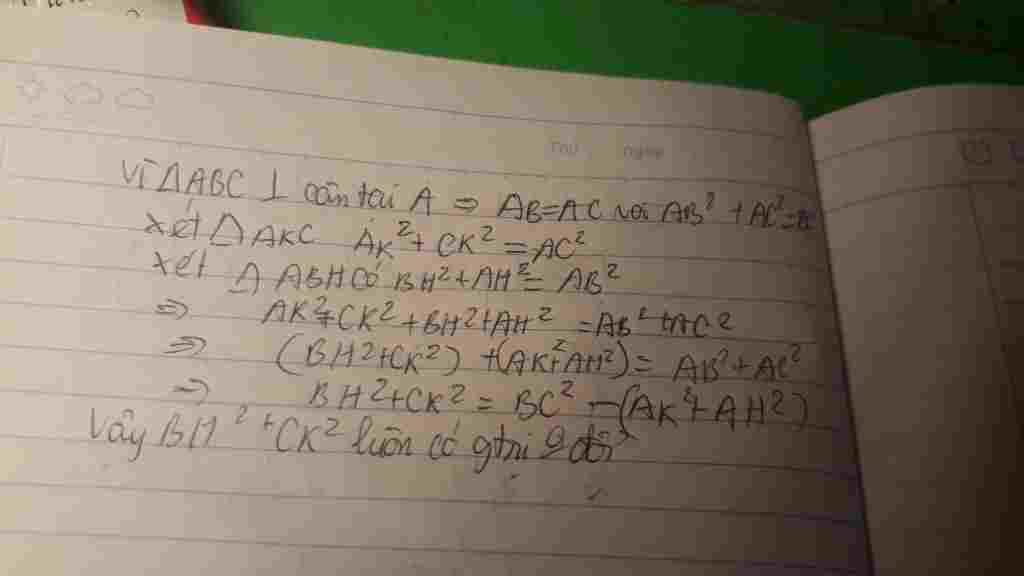 Thứ ngày
Vì ΔABC ⊥ cân tại A ⇒ AB=AC với AB² + AC²=
xét Δ AKC AK²+CK²=AC²
xét Δ ABH có BH²+AH²= AB²
⇒ AK²+CK²+BH²+AH² =AB²+AC²
⇒ (BH²+CK²) +(AK²+AH²)= AB²+AC²
⇒ BH²+CK² = BC² -(AK²+AH²)
Vậy BH²+CK² luôn có gtrị đổi